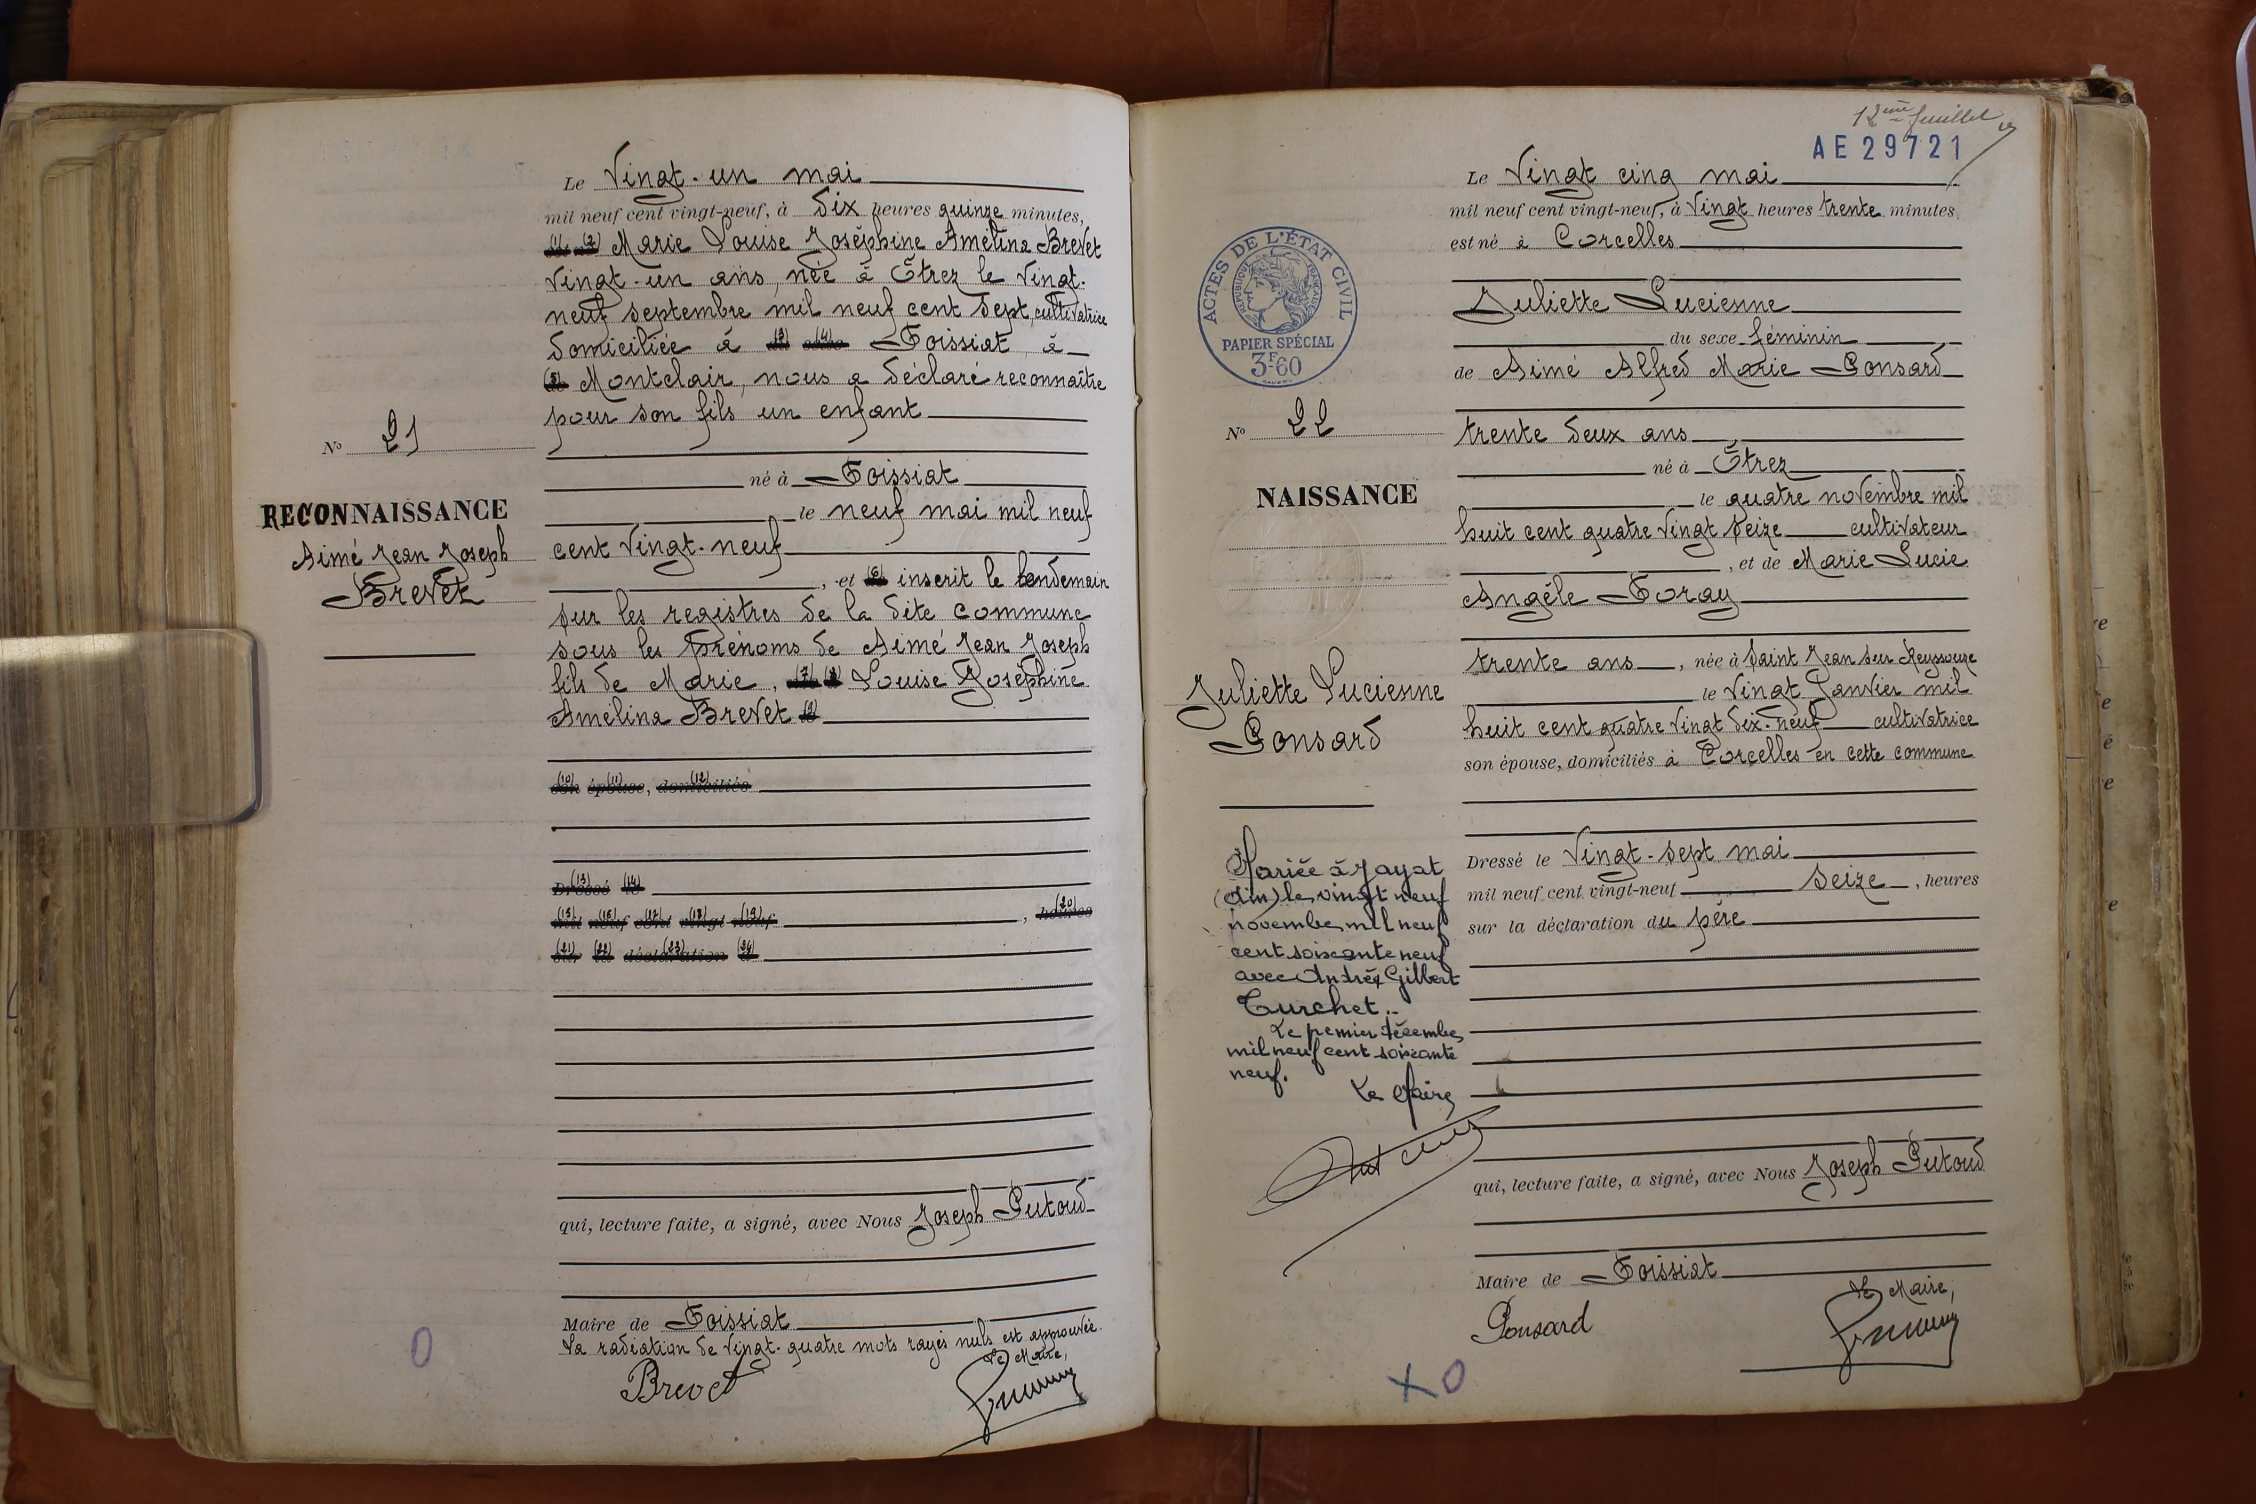 Le Vingt-un mai
mil neuf cent vingt-neuf, à dix heures quinze minutes,
(1) (2) Marie Louise Joséphine Amélina Brevet
vingt-un ans, née à Étrez le vingt-
neuf septembre mil neuf cent sept, cultivatrice
domiciliée à (3) (4) Foissiat, à
(5) Montclair, nous a déclaré reconnaître
pour son fils un enfant
né à Foissiat
le neuf mai mil neuf
cent vingt-neuf
, et (6) inscrit le lendemain
sur les registres de la dite commune
sous les prénoms de Aimé Jean Joseph
fils de Marie, (7) (8) Louise Joséphine
Amélina Brevet (9)
(10) son (11) épouse, (12) domiciliés
(13) Dressé (14) le
(15) mil (16) neuf (17) cent (18) vingt (19) neuf, (20) heures
(21) sur (22) la (23) déclaration (24) d
qui, lecture faite, a signé, avec Nous Joseph Putoud
Maire de Foissiat
La radiation de vingt-quatre mots rayés nuls est approuvée.
Le Maire,
Brevet
N° 21
RECONNAISSANCE
Aimé Jean Joseph
Brevet
12ème feuillet
AE 29721
Le Vingt cinq mai
mil neuf cent vingt-neuf, à vingt heures trente minutes
est né à Corcelles
Juliette Lucienne
du sexe féminin
de Aimé Alfred Marie Ponsard
trente deux ans
né à Étrez
le quatre novembre mil
huit cent quatre vingt seize cultivateur
, et de Marie Lucie
Angèle Foray
trente ans, née à Saint Jean sur Reyssouze
le vingt Janvier mil
huit cent quatre vingt dix-neuf cultivatrice
son épouse, domiciliés à Corcelles en cette commune
Dressé le vingt-sept mai
mil neuf cent vingt-neuf seize, heures
sur la déclaration du père
qui, lecture faite, a signé, avec Nous Joseph Putoud
Maire de Foissiat
Le Maire,
Ponsard
X O
ACTES DE L'ÉTAT CIVIL
RÉPUBLIQUE FRANÇAISE
PAPIER SPÉCIAL
3F60
N° 22
NAISSANCE
Juliette Lucienne
Ponsard
Mariée à Jayat
(Ain) le vingt neuf
novembre mil neuf
cent soixante neuf
avec André Gilbert
Turchet.
Le premier décembre
mil neuf cent soixante
neuf.
Le Maire
O